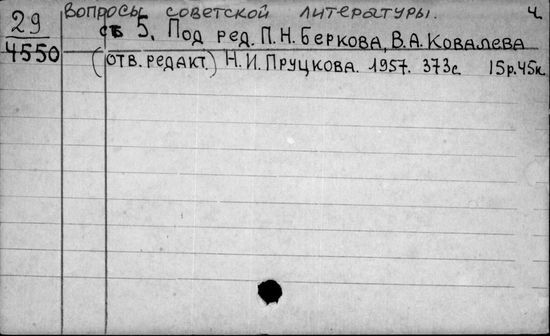 29 Вопросы советской литературы. Ч.
4550 сб 5. Под ред. П.Н. Беркова, В.А. Ковалева
(отв. редакт.) Н.И. Пруцкова. 1957. 373с. 15р.45к.